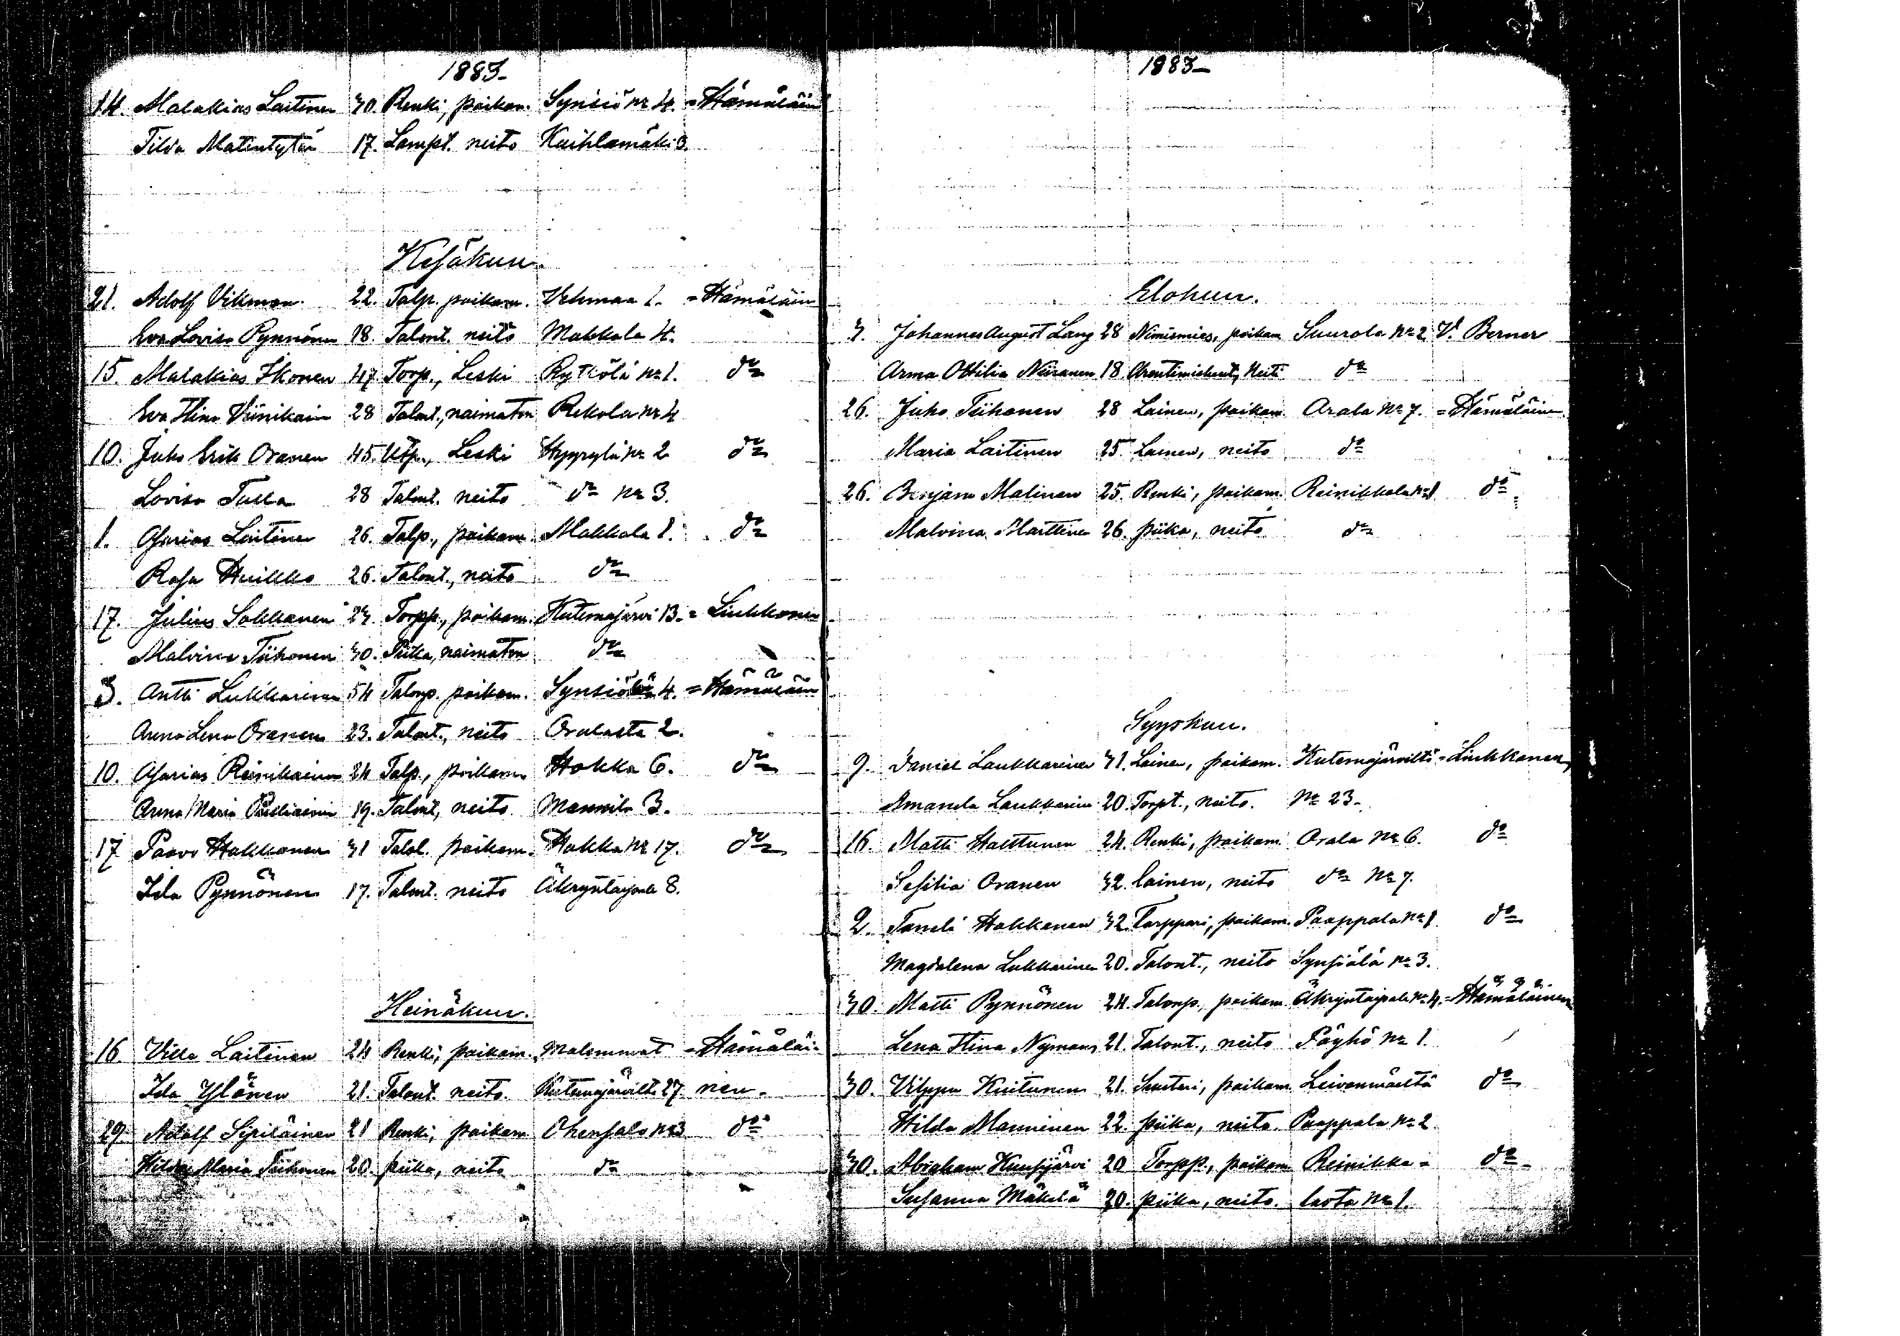 1883-
14. Malakias Laitinen 30. Renki, poikam. Synsiö nr 4. =Hämäläin
Tilda Matintytär 17. Lampt. neito Kuihlamäki 3.
Kesäkuu.
21. Adolf Vikman 22. Talp. poikam. Vehmaa 1. =Hämäläin
Eva Lovisa Pynnönen 18. Talont. neito Makkala 4.
15. Malakias Ikonen 47 Torp., Leski Rytkölä nr 1. do
Eva Stina Viinikain 28 Talont., naimaton Rekola nr 4
10. Juho Erik Oranen 45. Utp., Leski Hyyrylä nr 2 do
Lovisa Tulla 28 Talont. neito do nr 3.
1. Asarias Laitinen 26. Talp., poikam. Makkala 1. do
Rosa Huikko 26. Talont., neito do
17. Julius Sokkanen 27. Torpp., poikam. Kutemajärvi 13. = Liukkonen
Malvina Tiihonen 30. Piika, naimaton do
3. Antti Lukkarinen 54 Talonp. poikam. Synsiö 4. = Hämäläin
Anna Lena Oranen 23. Talont., neito Oralasta 2.
10. Asarias Reinikainen 24 Talp., poikam. Hokka 6. do
Anna Maria Pulliainen 19. Talont, neito Mannila 3.
17 Paavo Hokkanen 31 Talol. poikam. Hokka nr 17. do
Ida Pynnönen 17. Talont. neito Äkryntaipale 8.
Heinäkuu.
16 Ville Laitinen 24 Renki, poikam. molemmat =Hämäläi=
Ida Ylönen 21. Talont. neito. Kutemajärvilta 27. nen.
29. Adolf Sipiläinen 21 Renki, poikam Ohensalo nr 3 do
Hilda Maria Tiihonen 20. piika, neito do
1883-
Elokuu.
7. Johannes August Lang 28 Nimismies, poikam Suurola nr 2 V. Berner
Anna Ottilia Niiranen 18. neiti do
26. Juho Tiihonen 28 Loinen, poikam Orala nr 7. =Hämäläinen
Maria Laitinen 25. Loinen, neito do
26. Benjam Malinen 25. Renki, poikam. Reinikkala nr 1 do
Malvina Marttinen 26. piika, neito do
Syyskuu.
9. Daniel Laukkarinen 31. Loinen, poikam. Kutemajärviltä =Liukkonen,
Amanda Laukkarinen 20. Torpt., neito. nr 23.
16. Matti Halttunen 24. Renki, poikam Orala nr 6. do
Sesilia Oranen 32. loinen, neito do nr 7.
2. Taneli Hokkanen 32. Torppari, poikam. Paappala nr 1 do
Magdalena Lukkarinen 20. Talont., neito Synsiälä nr 3.
30. Matti Pynnönen 24. Talonp., poikam Äkryntaipale nr 4. =Hämäläinen
Lena Stina Nyman 21. Talont., neito Pöyhö nr 1.
30. Vilppu Kuitunen 21. Suuteri, poikam Leivonmäeltä do
Hilda Manninen 22. piika, neito. Paappala nr 2
30. Abraham Kuusjärvi 20 Torpp., poikam Reinikka= do
Susanna Mäkelä 20. piika, neito. laota nr 1.